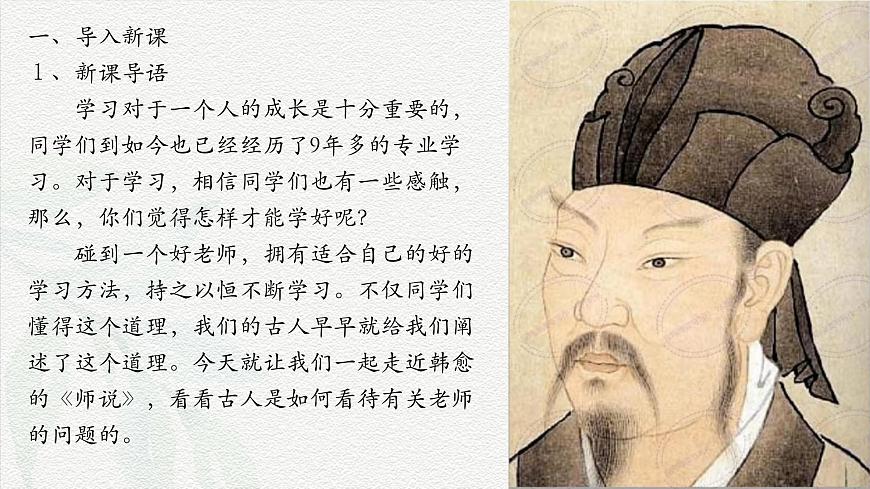 一、导入新课
1、新课导语
学习对于一个人的成长是十分重要的，
同学们到如今也已经经历了9年多的专业学
习。对于学习，相信同学们也有一些感触，
那么，你们觉得怎样才能学好呢？
碰到一个好老师，拥有适合自己的好的
学习方法，持之以恒不断学习。不仅同学们
懂得这个道理，我们的古人早早就给我们阐
述了这个道理。今天就让我们一起走近韩愈
的《师说》，看看古人是如何看待有关老师
的问题的。